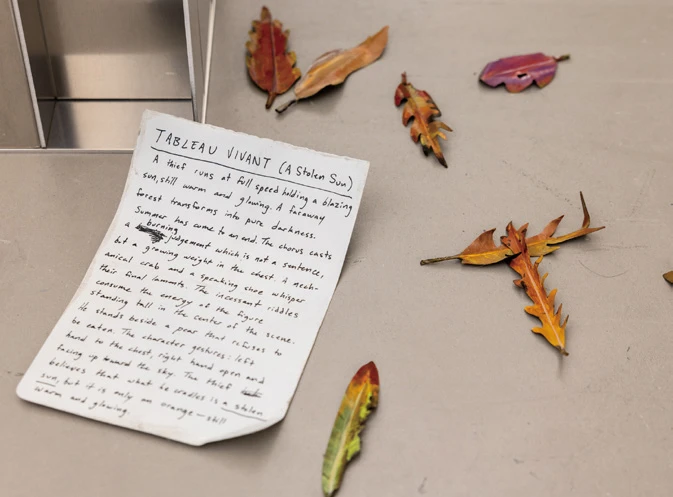 TABLEAU VIVANT (A Stolen Sun)
A thief runs at full speed holding a blazing
sun, still warm and glowing. A faraway
forest transforms into pure darkness.
Summer has come to an end. The chorus casts
a burning judgement which is not a sentence,
but a growing weight in the chest. A mech-
anical crab and a speaking shoe whisper
their final laments. The incessant riddles
consume the energy of the figure
standing tall in the center of the scene.
He stands beside a pear that refuses to
be eaten. The character gestures: left
hand to the chest, right hand open and
facing up toward the sky. The thief
believes that what he cradles is a stolen
sun, but it is only an orange — still
warm and glowing.